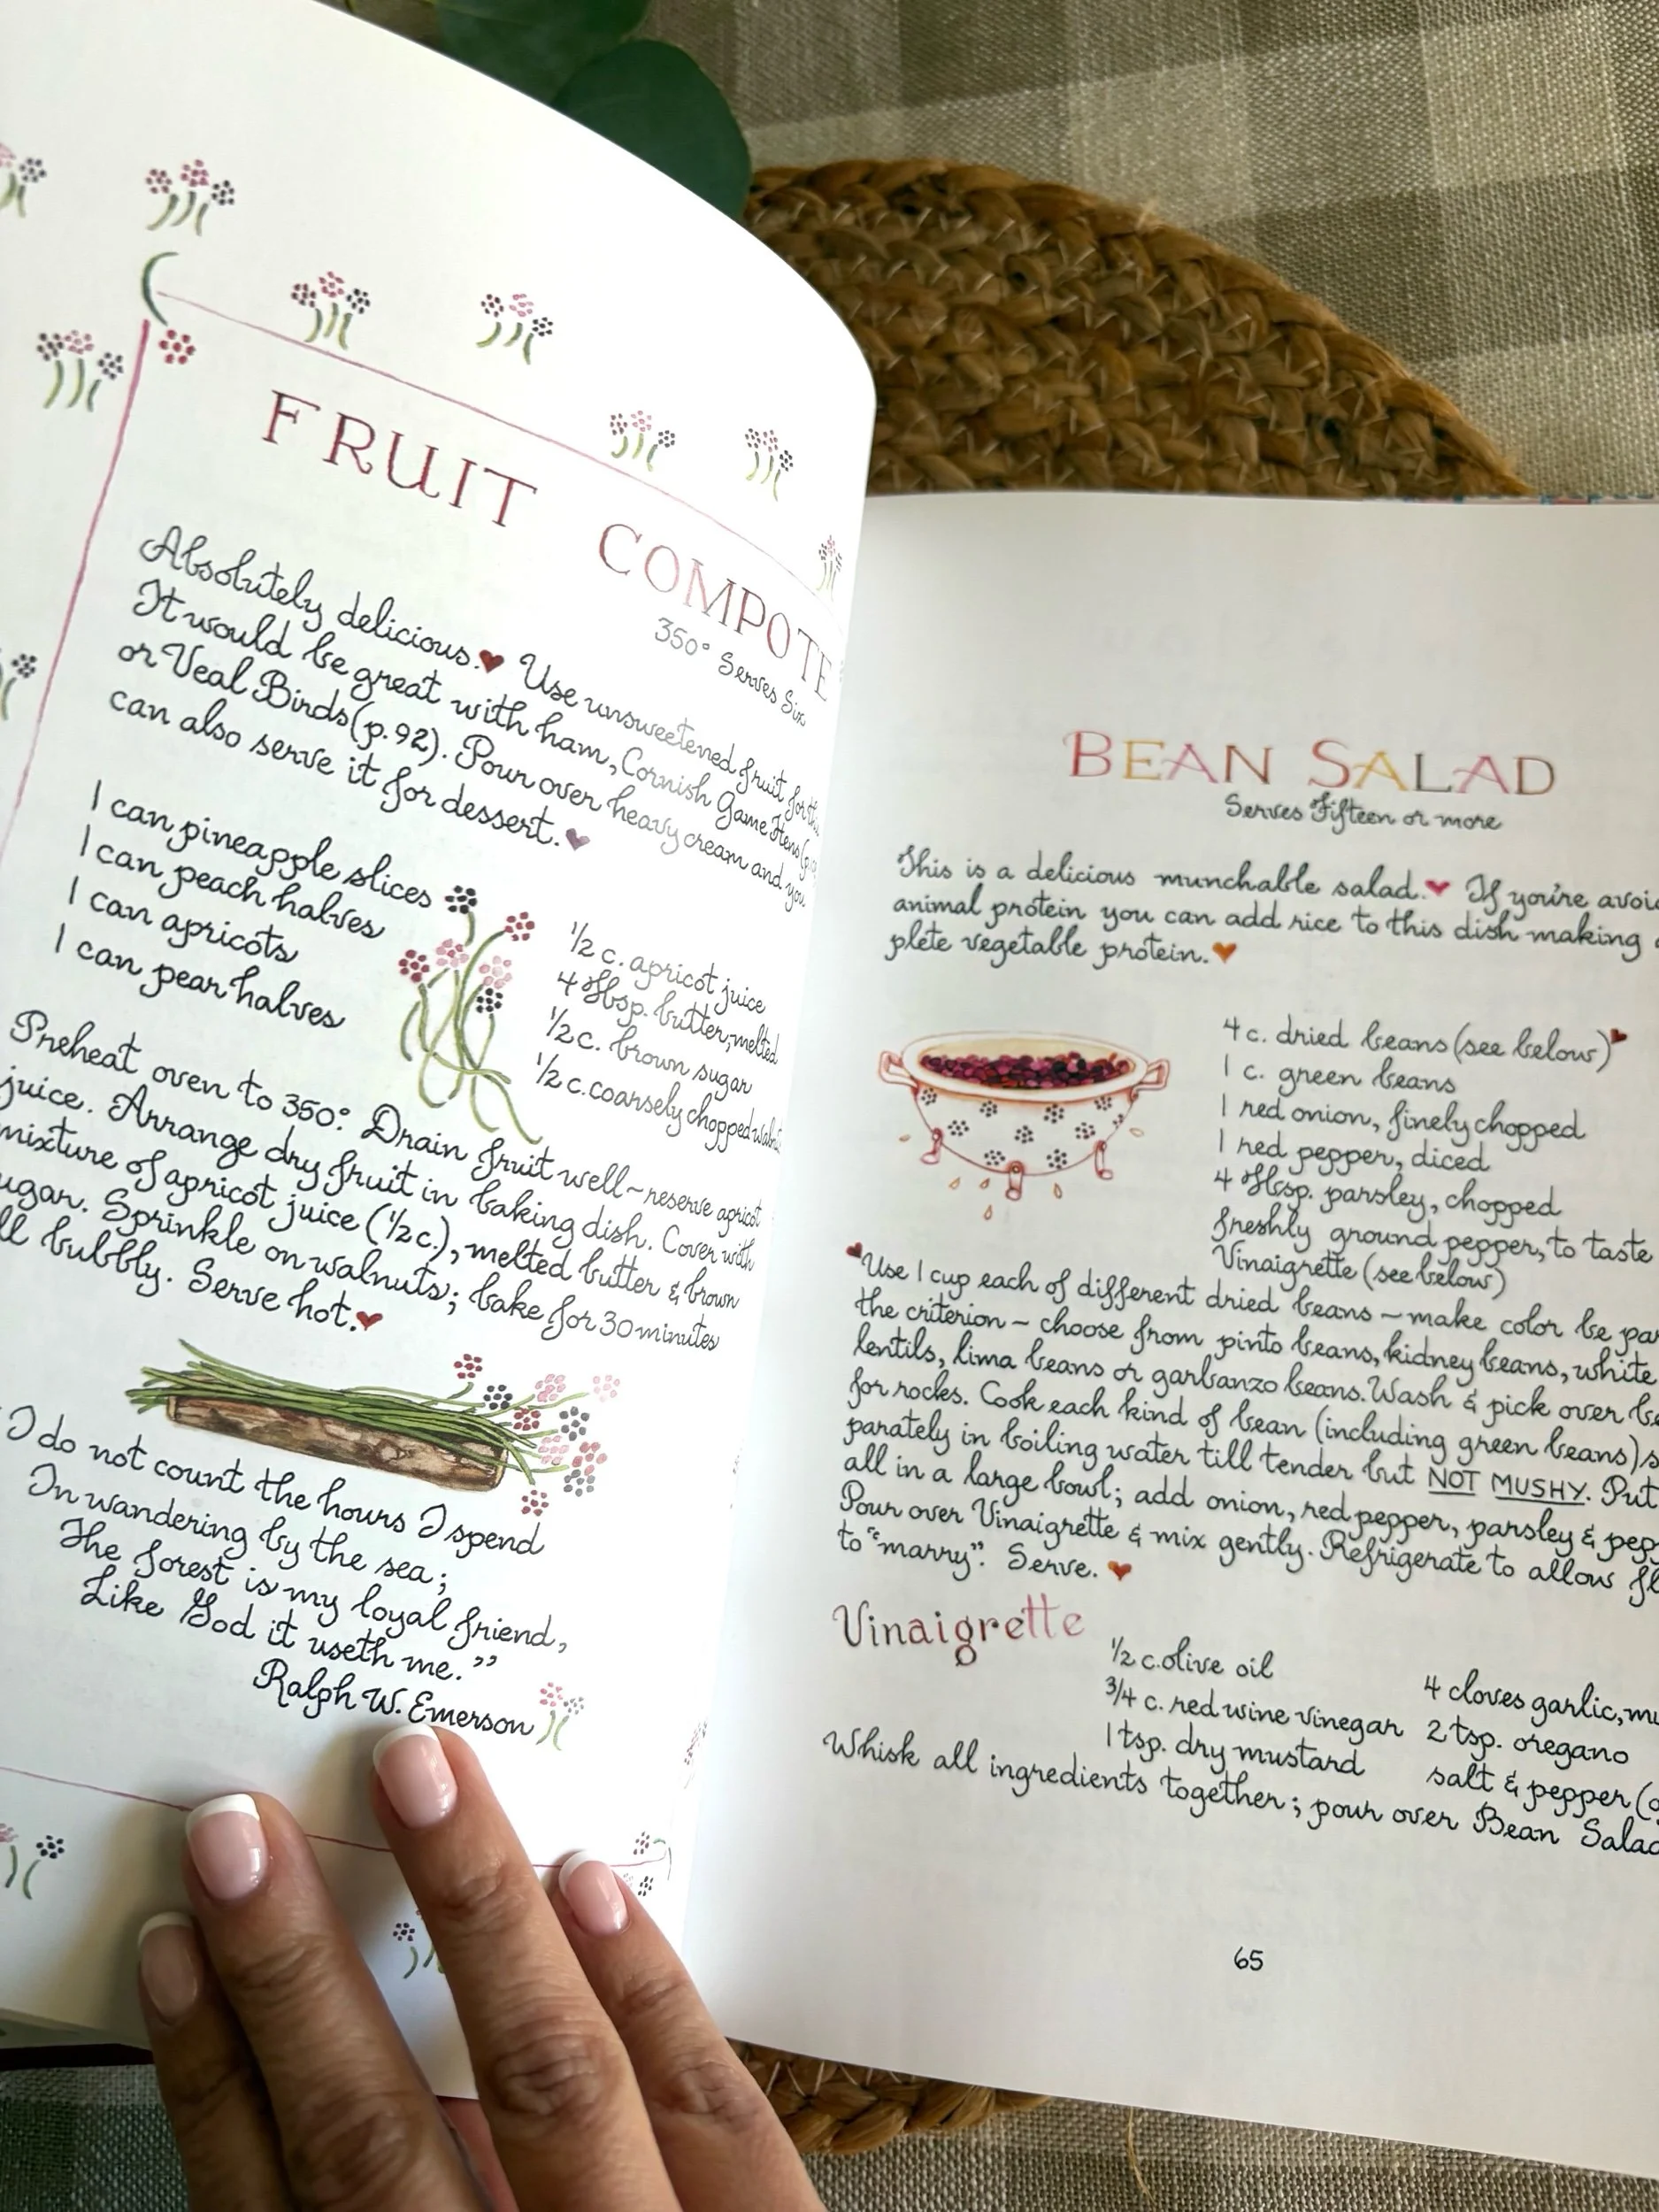 FRUIT COMPOTE
350° Serves Six
Absolutely delicious. Use unsweetened fruit for this
It would be great with ham, Cornish Game Hens
or Veal Birds (p. 92). Pour over heavy cream and you
can also serve it for dessert.
1 can pineapple slices
1 can peach halves
1 can apricots
1 can pear halves
1/2 c. apricot juice
4 Tbsp. butter, melted
1/2 c. brown sugar
1/2 c. coarsely chopped
Preheat oven to 350°. Drain fruit well ~ reserve apricot
juice. Arrange dry fruit in baking dish. Cover with
mixture of apricot juice (1/2 c.), melted butter & brown
ugar. Sprinkle on walnuts; bake for 30 minutes
ll bubbly. Serve hot.
"I do not count the hours I spend
In wandering by the sea;
The forest is my loyal friend,
Like God it useth me."
Ralph W. Emerson
BEAN SALAD
Serves Fifteen or more
This is a delicious munchable salad. If you're avoi
animal protein you can add rice to this dish making
plete vegetable protein.
4 c. dried beans (see below)
1 c. green beans
1 red onion, finely chopped
1 red pepper, diced
4 Tbsp. parsley, chopped
freshly ground pepper, to taste
Vinaigrette (see below)
Use 1 cup each of different dried beans ~ make color be par
the criterion ~ choose from pinto beans, kidney beans, white
lentils, lima beans or garbanzo beans. Wash & pick over be
for rocks. Cook each kind of bean (including green beans) s
parately in boiling water till tender but NOT MUSHY. Put
all in a large bowl; add onion, red pepper, parsley & pep
Pour over Vinaigrette & mix gently. Refrigerate to allow fl
to "marry". Serve.
Vinaigrette
1/2 c. olive oil
3/4 c. red wine vinegar
1 tsp. dry mustard
4 cloves garlic, m
2 tsp. oregano
salt & pepper
Whisk all ingredients together; pour over Bean Salad
65